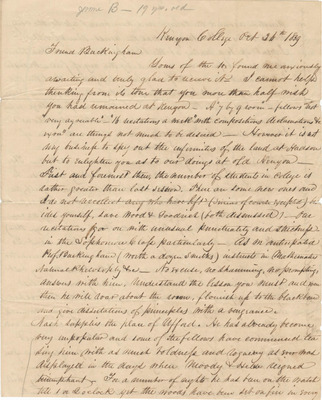 Kenyon College Oct 26th 189
Friend Buckingham
Yours of the 10 found me anxiously
awaiting and truly glad to receive it I cannot help
thinking from its tone that you more than half wish
you had remained at Kenyon
very agreeable" "16 recitations a week" with compositions declamations &
are things not much to be desired However it is not
my business to spy out the infirmities of the land at Hudson
but to enlighten you as to our doings at old Kenyon
First and foremost then the number of students in College is
rather greater than last session There are some new ones and
I do not recollect any who have left (seniors of course excepted) be
sides yourself, save Wood & Goodrich (both dismissed) The
recitations go on with unusual punctuality and strictness
in the Sophomore Class particularly As in anticipated
Prof Buckingham (worth a dozen Smiths) instructs in Mathematics
Natural Philosophy &c No excuse, no shamming, no prompting
answers with him. Understand the lesson you must and
then he will soar about the room, flourish up to the blackboard
and give dissertations of principles with a vengeance.
Nash supplies the place of Alford. He has already become
very unpopular and some of the fellows have commenced tea
sing him with as much boldness and roguery as ever was
displayed in the days when Moody &
triumphant. For a number of nights he has been on the watch
till 1 o'clock get the woods have been set on fire in